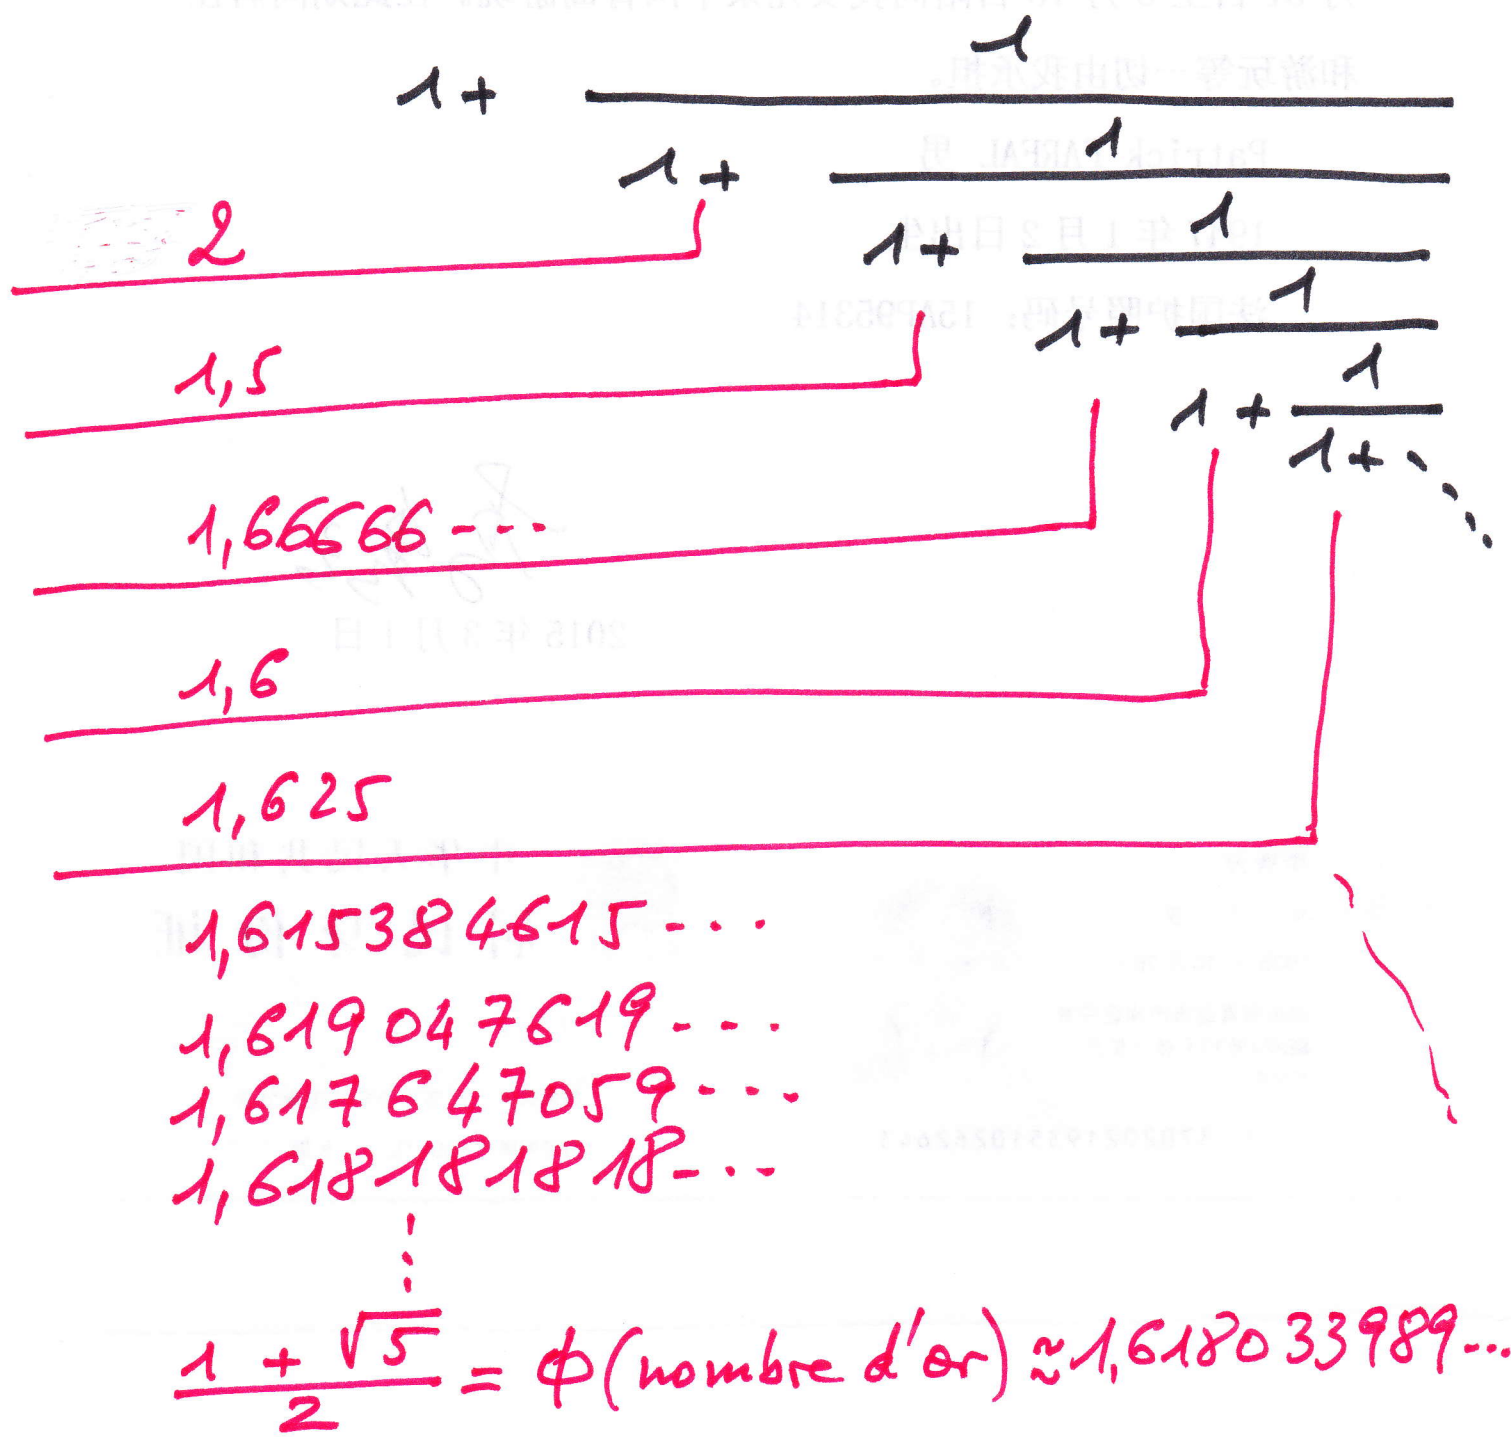 1
1+
1
1+
1
1+
1
1+
1
1+
1+
2
1,5
1,66666---
1,6
1,625
1,615384615---
1,619047619---
1,617647059---
1,618181818---
1 + √5
2
= Φ (nombre d'or) ≈ 1,618033989...